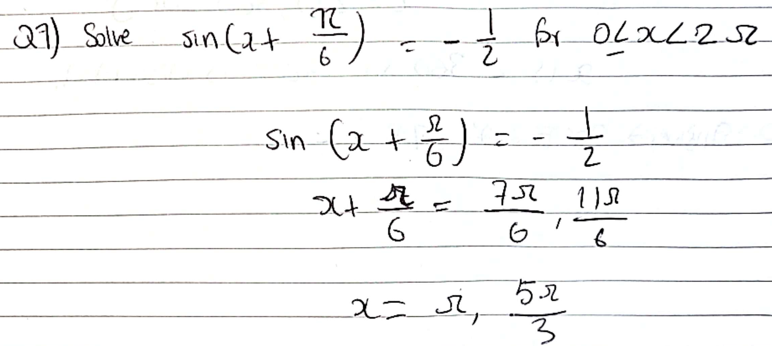 Q7) Solve sin(x + π/6) = - 1/2 for 0 ≤ x < 2π
sin (x + π/6) = - 1/2
x + π/6 = 7π/6 , 11π/6
x = π, 5π/3